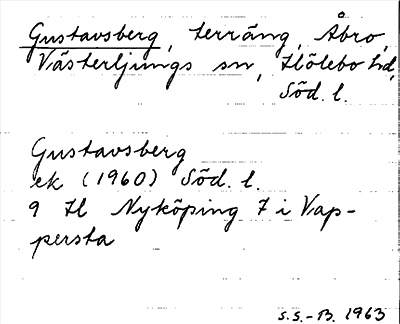 Gustavsberg, terräng, Åbro,
Västerljungs sn, Hölebo hd,
Söd. l.
Gustavsberg
ek (1960) Söd. l.
9 H Nyköping 7 i Vap-
persta
S.S.-B. 1963